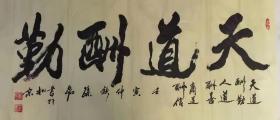 天道酬勤
天道
酬勤
人道
酬善
商道
酬信
壬
寅
仲